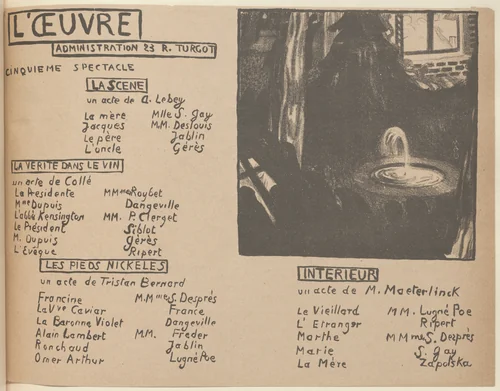 L'ŒUVRE
ADMINISTRATION 23 R. TURGOT
CINQUIEME SPECTACLE
LA SCENE
un acte de A. Lebey
La mère Mlle S. Gay
Jacques M.M. Deslouis
Le père Jablin
L'uncle Gérès
LA VERITE DANS LE VIN
un acte de Collé
La Presidente MMmes Roybet
Mme Dupuis Dangeville
L'abbé Kensington MM. P. Clerget
Le Président Siblot
M. Dupuis Gérès
L'Evêque Ripert
LES PIEDS NICKELES
un acte de Tristan Bernard
Francine M.Mmes S. Després
La Vve Caviar France
La Baronne Violet Dangeville
Alain Lambert MM. Fréder
Ronchaud Jablin
Omer Arthur Lugné Poe
INTERIEUR
un acte de M. Maeterlinck
Le Vieillard MM. Lugné Poe
L'Etranger Ripert
Marthe MMmes S. Després
Marie S. Gay
La Mère Zapolska